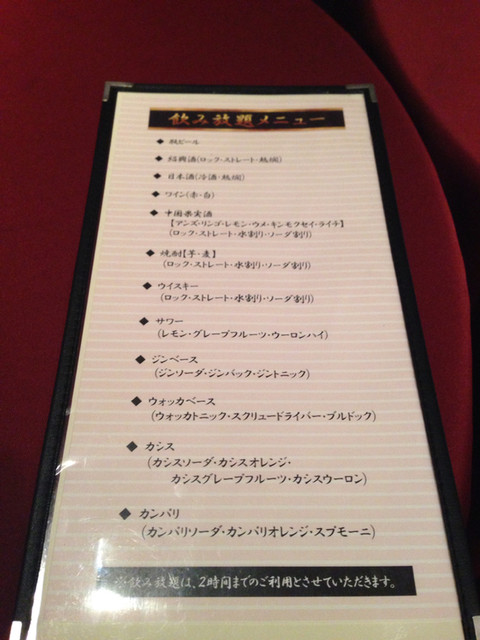 飲み放題メニュー
◆ 瓶ビール
◆ 紹興酒(ロック・ストレート・熱燗)
◆ 日本酒(冷酒・熱燗)
◆ ワイン(赤・白)
◆ 中国果実酒
【アンズ・リンゴ・レモン・ウメ・キンモクセイ・ライチ】
(ロック・ストレート・水割り・ソーダ割り)
◆ 焼酎【芋・麦】
(ロック・ストレート・水割り・ソーダ割り)
◆ ウイスキー
(ロック・ストレート・水割り・ソーダ割り)
◆ サワー
(レモン・グレープフルーツ・ウーロンハイ)
◆ ジンベース
(ジンソーダ・ジンバック・ジントニック)
◆ ウォッカベース
(ウォッカトニック・スクリュードライバー・ブルドック)
◆ カシス
(カシスソーダ・カシスオレンジ・
カシスグレープフルーツ・カシスウーロン)
◆ カンパリ
(カンパリソーダ・カンパリオレンジ・スプモーニ)
※飲み放題は、2時間までのご利用とさせていただきます。